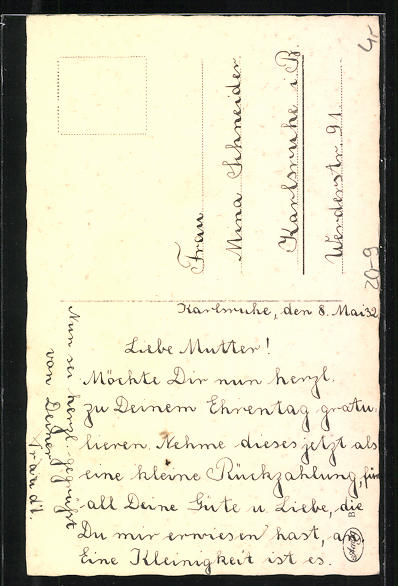 Frau
Mina Schneider
Karlsruhe i. B.
Werderstr. 91.
Karlsruhe, den 8. Mai 32
Liebe Mutter!
Möchte Dir nun herzl.
zu Deinem Ehrentag gratu-
lieren. Nehme dieses jetzt als
eine kleine Rückzahlung, für
all Deine Güte u. Liebe, die
Du mir erwiesen hast, an.
Eine Kleinigkeit ist es.
Nun sei herzl. gegrüßt
von Deiner
Traudl.
20-9